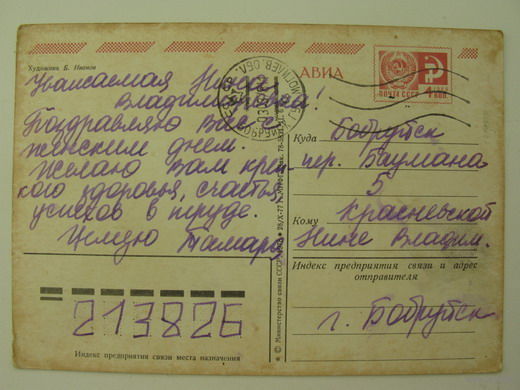 Художник Б. Иванов
АВИА
ПОЧТА СССР
4 коп.
Уважаемая Нина
Владимировна!
Поздравляю Вас с
женским днем.
Желаю Вам креп-
кого здоровья, счастья,
успехов в труде.
Целую Тамара
Куда Бобруйск
пер. Баумана
5
Кому Красневской
Нине Владим.
Индекс предприятия связи и адрес
отправителя
г. Бобруйск
213826
Индекс предприятия связи места назначения
© Министерство связи СССР